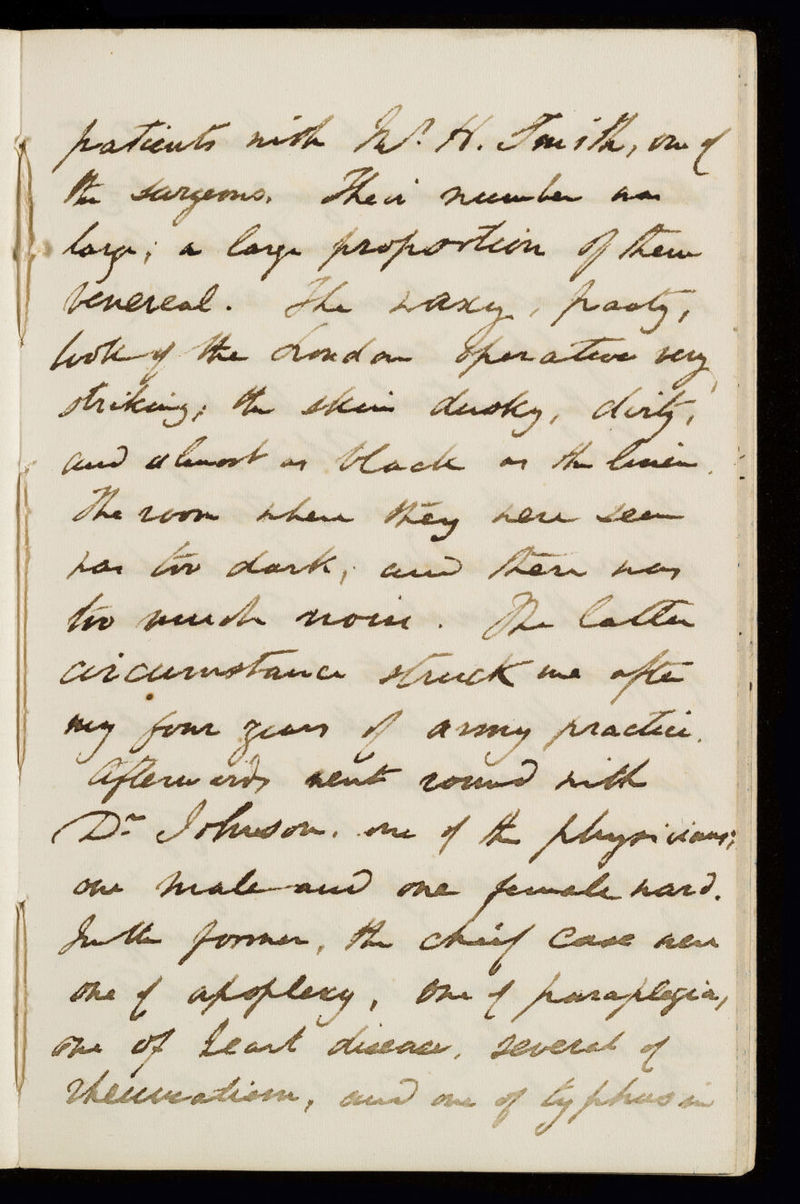 patients with Mr. H. Smith, one of
the surgeons. Their number was
large; a large proportion of them
venereal. The waxy, pasty,
look of the London operative very
striking; the skin dusky, dirty,
and almost as black as the linen.
The room where they were seen
was too dark, and there was
too much noise. The latter
circumstance struck me after
my four years of army practice.
Afterwards went round with
Dr Johnson, one of the physicians;
one male and one female ward.
In the former, the chief cases were
one of apoplexy, one of paraplegia,
one of heart disease, several of
rheumatism, and one of typhus in